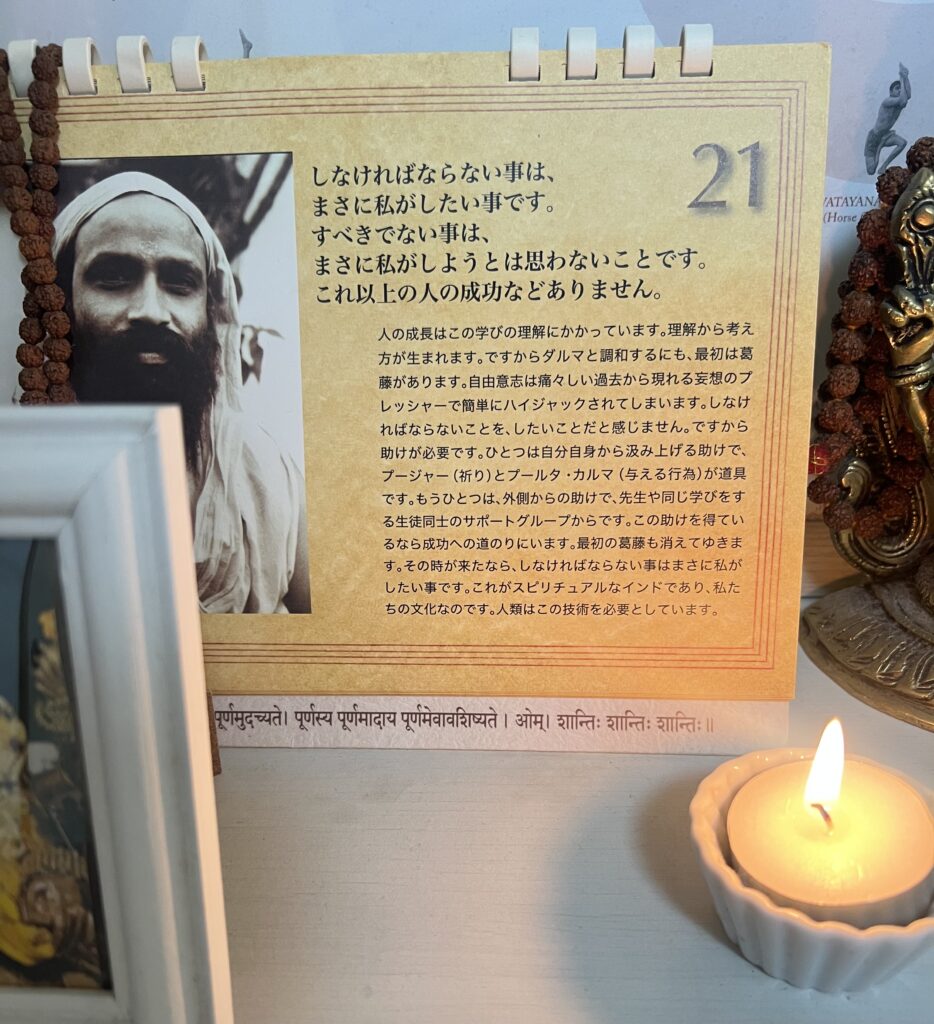 21
しなければならない事は、
まさに私がしたい事です。
すべきでない事は、
まさに私がしようとは思わないことです。
これ以上の人の成功などありません。
人の成長はこの学びの理解にかかっています。理解から考え
方が生まれます。ですからダルマと調和するにも、最初は葛
藤があります。自由意志は痛々しい過去から現れる妄想のプ
レッシャーで簡単にハイジャックされてしまいます。しなけ
ればならないことを、したいことだと感じません。ですから
助けが必要です。ひとつは自分自身から汲み上げる助けで、
プージャー（祈り）とプールタ・カルマ（与える行為）が道具
です。もうひとつは、外側からの助けで、先生や同じ学びをす
る生徒同士のサポートグループからです。この助けを得てい
るなら成功への道のりにいます。最初の葛藤も消えてゆきま
す。その時が来たなら、しなければならない事はまさに私が
したい事です。これがスピリチュアルなインドであり、私た
ちの文化なのです。人類はこの技術を必要としています。
पूर्णमुदच्यते। पूर्णस्य पूर्णमादाय पूर्णमेवावशिष्यते । ओम्। शान्तिः शान्तिः शान्तिः॥
VATAYANA
(Horse